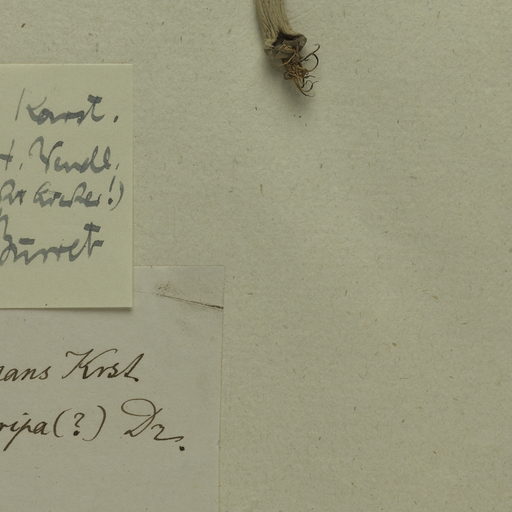 Karst.
H. Wendl.
Burret
ans Krst
ripa(?) Dr.